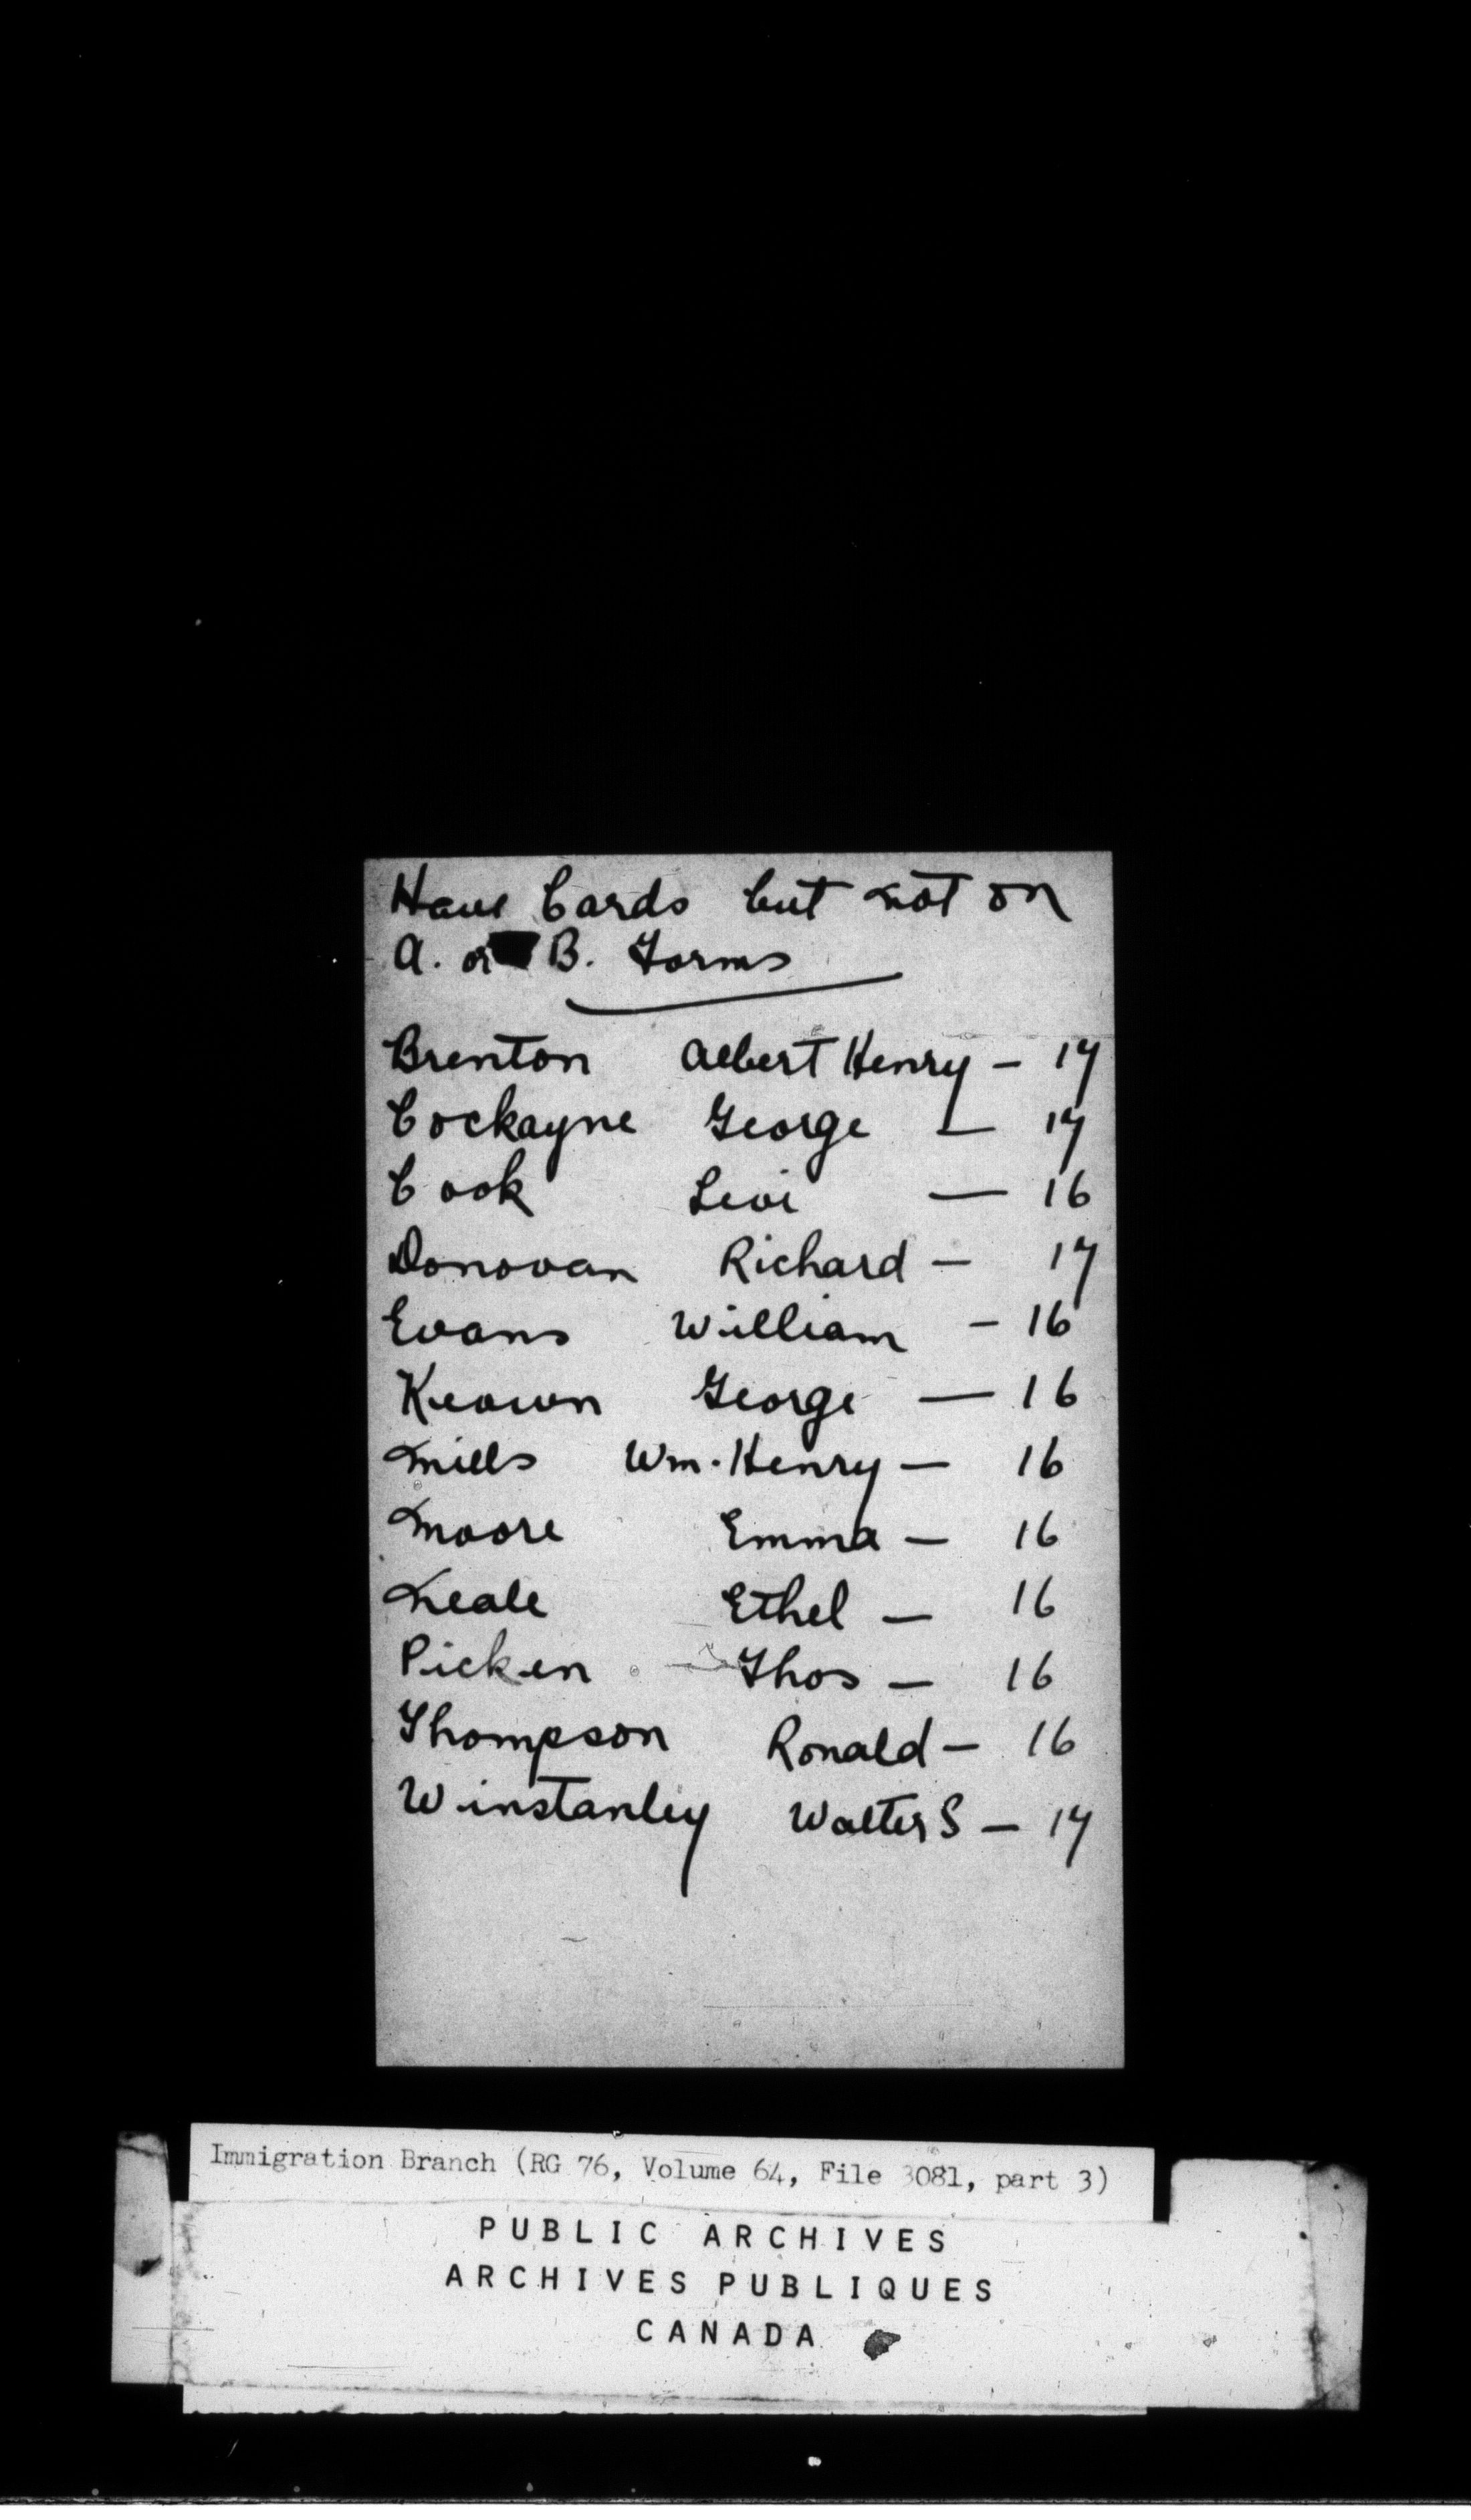 Have Cards but not on
A. or B. Forms
Brenton Albert Henry - 17
Cockayne George - 17
Cook Levi - 16
Donovan Richard - 17
Evans William - 16
Keown George - 16
Mills Wm. Henry - 16
Moore Emma - 16
Neale Ethel - 16
Picken Thos - 16
Thompson Ronald - 16
Winstanley Walter S - 17
Immigration Branch (RG 76, Volume 64, File 3081, part 3)
PUBLIC ARCHIVES
ARCHIVES PUBLIQUES
CANADA